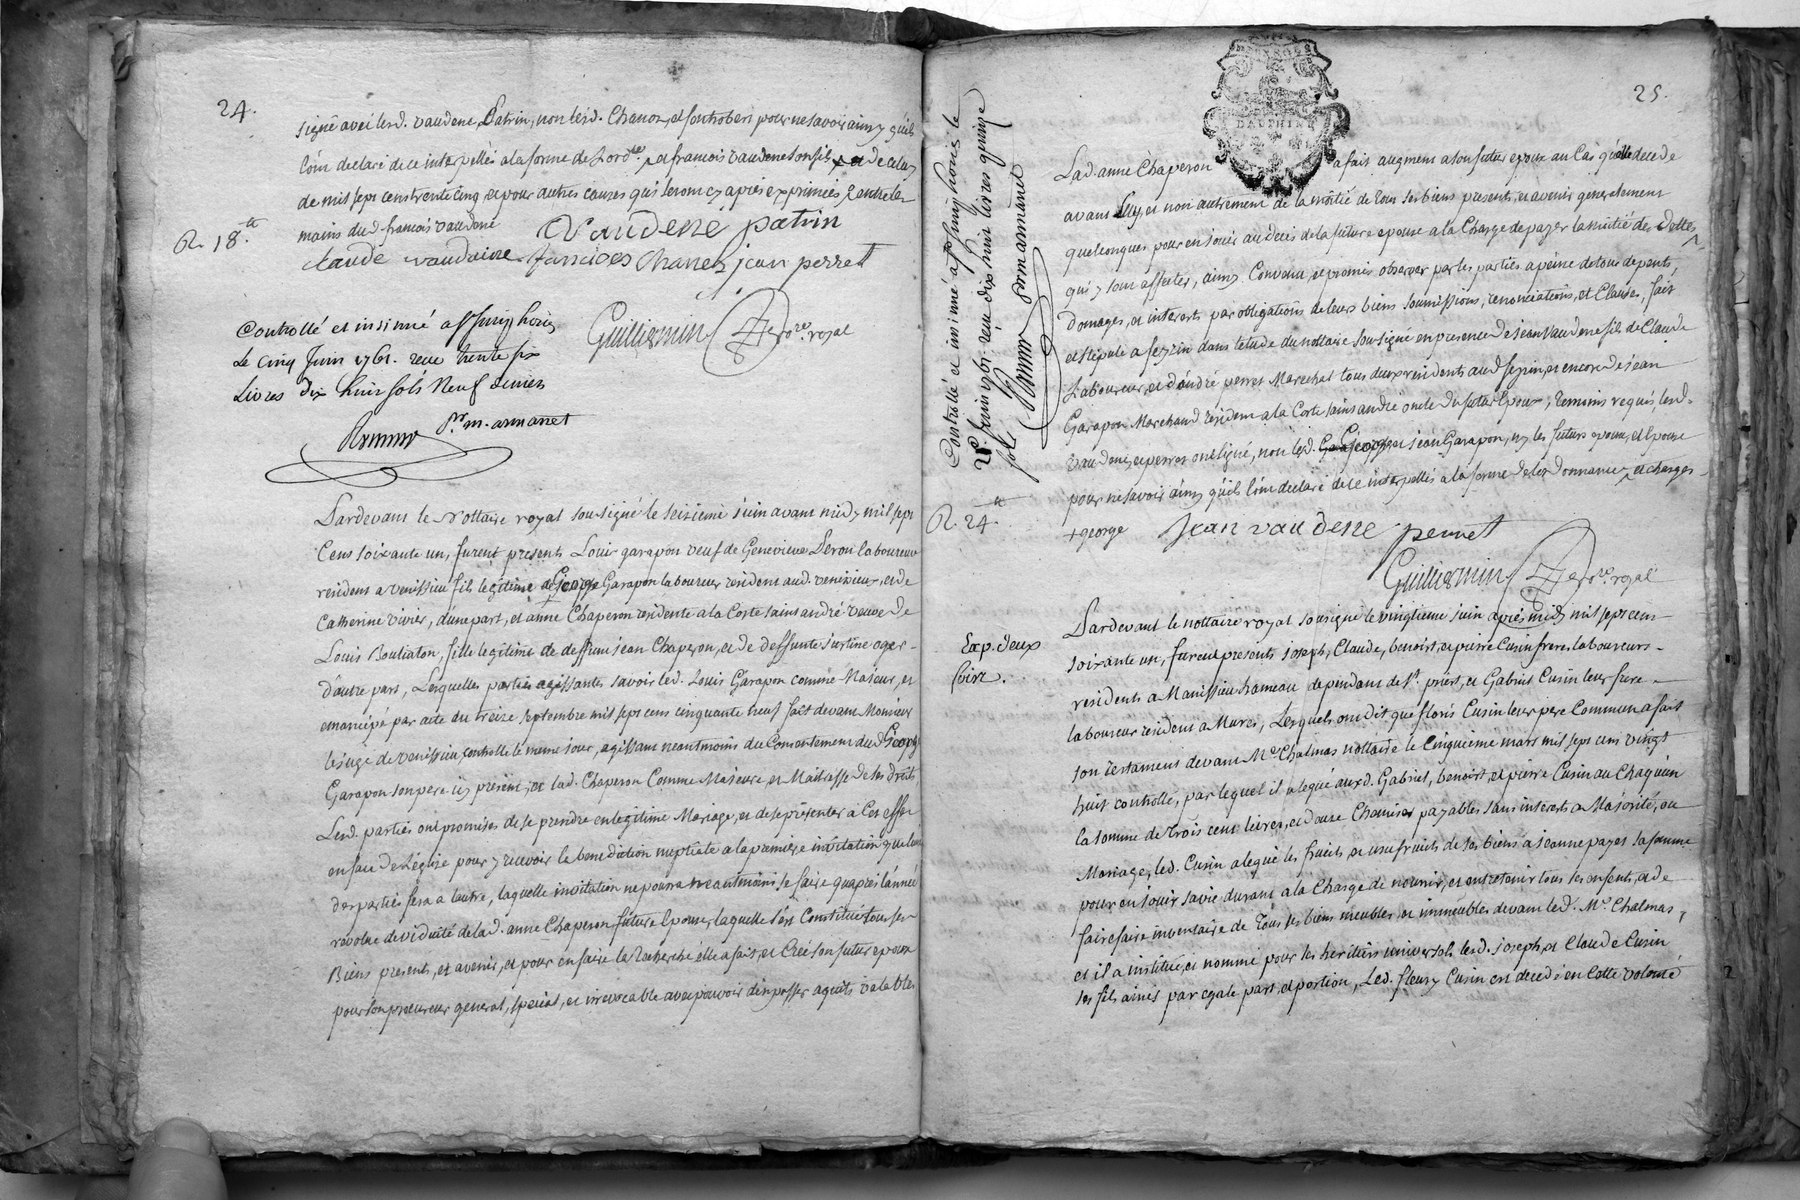 24.
signé avec lesd. vaudene, Patrin, non led. Chanon, et soutroben pour ne savoir ainsy quils
l'ont declaré de ce interpellés a la forme de Lord.ce et francois vaudene son fils et de celuy
de mil sept cens trente cinq et pour autres causes qui seront cy apres exprimées entre les
mains dud francois vaudene
R. 18.tt
Vaudene patrin
claude vaudaine francoes Chanen jean perret
Guilliermin no.re royal
Controllé et insinué a st Simphorien
Le cinq Juin 1761. receu trente six
Livres dix huit sols Neuf deniers
Pr. m. armanet
Pardevant le Nottaire royal sousigné le seizieme juin avant midy mil sept
Cens soixante un, furent presents Louis garapon veuf de Genevieve Peron laboureur
resident a venissieu fils legitime de George Garapon laboureur resident aud. venissieux, et de
Catherine vivier, d'une part, et anne Chaperon residente a la Coste saint andré veuve de
Louis Boutiaton, fille legitime de deffunt jean Chaperon, et de deffunte justine oger-
d'autre part, Lesquelles parties agissantes savoir led. Louis Garapon comme Majeur, et
emancipé par acte du treize septembre mil sept cens cinquante neuf fait devant Monsieur
le juge de venissieu controlle le meme jour, agissant neantmoins du Consentement dud George
Garapon son pere icy present, et lad. Chaperon Comme Majeure et Maitresse de ses droits
Lesd. parties ont promises de se prendre en legitime Mariage, et de se présenter a Cet effet
en face de L'église pour y recevoir la benediction nuptiale a la premiere invitation que l'une
des parties fera a l'autre, laquelle invitation ne pourra neantmoins se faire qu'apres l'année
revolue de viduité de lad. anne Chaperon future Epouse, laquelle s'est Constitué tous ses
Biens presents, et avenir, et pour en faire la Recherche elle a fait, et Creé son futur epoux
pour son procureur general, special, et irrevocable avec pouvoir d'en passer aquits valables
25.
DAUPHINE
Lad. anne Chaperon a fait augment a son futur epoux au Cas qu'elle decede
avant Luy, et non autrement de la moitié de tous ses biens presents, et avenir generalement
quelconques pour en jouir au decés de la future epouse a la Charge de payer la moitié des Dettes
qui y sont affectés, ainsy Convenu, et promis observer par les parties a peine de tous depents,
Domages, et interets par obligations de leurs biens soumissions, renonciations, et Clauses, fait
et stipulé a feyzin dans l'etude du nottaire sousigné en presence de jean vaudene fils de Claude
Laboureur, et d'andré perret Marechal tous deux residents aud feyzin, et encore de jean
Garapon Marchand resident a la Coste saint andré oncle du futur Epoux, temoins requis, lesd.
vaudene, et perret ont signé, non lesd. George et jean Garapon, ny les futurs epoux, et Epouse
pour ne savoir ainsy quils l'ont declaré de ce interpellés a la forme de les donnance, et charges
+george
R. 24.tt
Jean vaudene perret
Guilliermin no.re royal
Controllé et insinué a st Simphorien le
26 Juin 1761. receu dix huit livres quinze
sols
Pr m armanet
Exp. deux
foire.
Pardevant le nottaire royal sousigné le vingtieme juin après midy mil sept cens
soixante un, furent presents joseph, Claude, benoist, et pierre Cusin freres laboureurs
residents a Manissieu hameau dependant de St. priest, et Gabriel Cusin leur frere
laboureur resident a Mures, Lesquels ont dit que floris Cusin leur pere Commun a fait
son testament devant Me Chalmas nottaire le Cinquieme mars mil sept cens vingt
huit controlle, par lequel il a legué auxd. Gabriel, benoist, et pierre Cusin au Chaquun
la somme de trois cent livres, et douze Chemises payables sans interets a Majorité, ou
Mariage, led. Cusin a legué les fruits, et usufruits de ses biens a jeanne payet sa femme
pour en jouir sa vie durant a la Charge de nourir, et entretenir tous ses enfants, et de
faire faire inventaire de Tous ses biens meubles, et immeubles devant led. Me. Chalmas,
et il a institué, et nommé pour ses heritiers universels lesd. joseph, et Claude Cusin
ses fils ainés par egale part, et portion, Led. fleury Cusin est decedé en Cette volonté